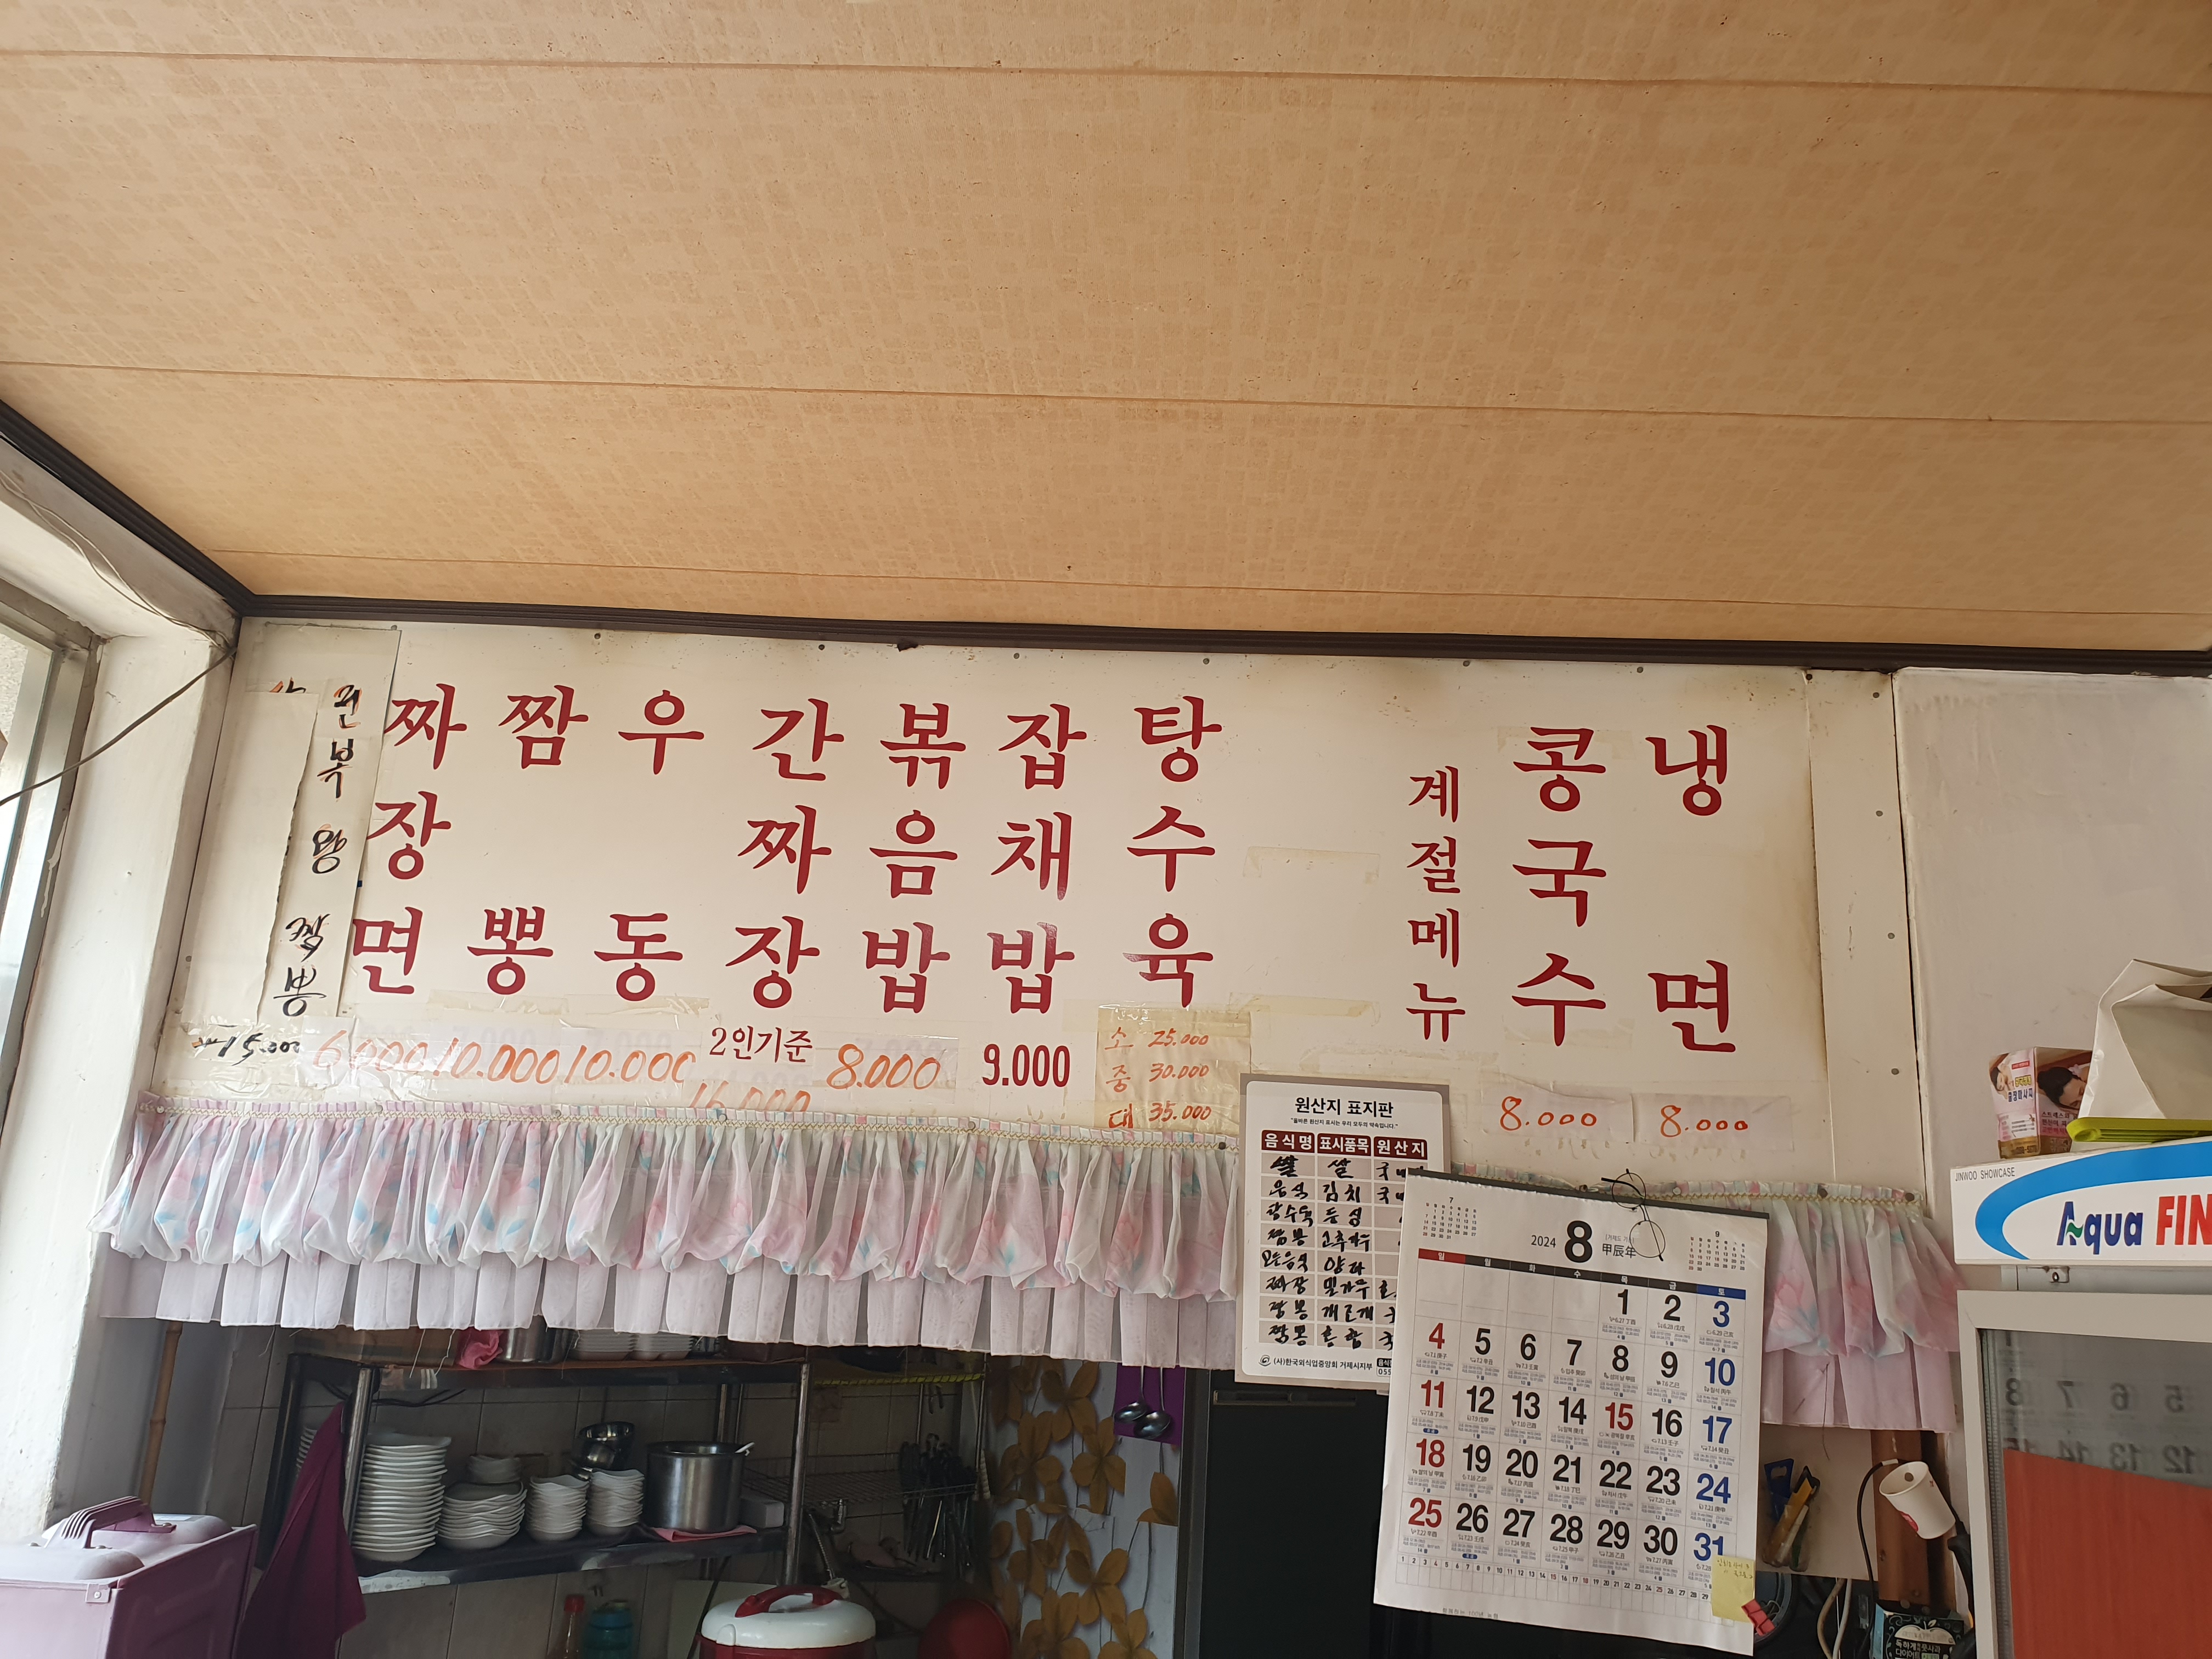 왕
짬
뽕
15.000
짜장면
6.000
짬뽕
10.000
우동
10.000
간짜장
2인기준
16.000
볶음밥
8.000
잡채밥
9.000
탕수육
소 25.000
중 30.000
대 35.000
계절메뉴
콩국수
8.000
냉면
8.000
원산지 표지판
"올바른 원산지 표시는 우리 모두의 약속입니다."
음식명 표시품목 원산지
쌀 쌀
음식 김치
탕수육 등심
짬뽕 고추가루
모든음식 양파
짜장 밀가루
짬뽕
짬뽕 홍합
(사)한국외식업중앙회 거제시지부
055
7
2024 8 甲辰年
9
일 월 화 수 목 금 토
1 2 3
4 5 6 7 8 9 10
11 12 13 14 15 16 17
18 19 20 21 22 23 24
25 26 27 28 29 30 31
JINWOO SHOWCASE
Aqua FIN